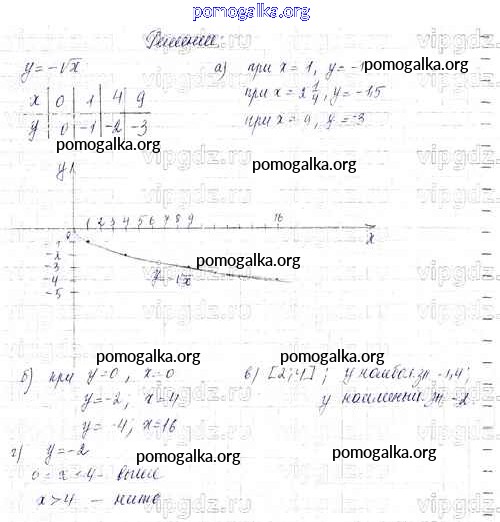 pomogalka.org
Решение:
y = -√x
x | 0 | 1 | 4 | 9
y | 0 | -1 | -2 | -3
а) при x = 1, y = -1
при x = 2 1/4, y = -1,5
при x = 9, y = -3
pomogalka.org
pomogalka.org
y
0 1 2 3 4 5 6 7 8 9 16
x
-1
-2
-3
-4
-5
y = -√x
pomogalka.org
pomogalka.org
pomogalka.org
б) при y = 0, x = 0
y = -2; x = 4
y = -4; x = 16
в) [2; 4]; y наибол. зн -1,4;
y наименьш. зн -2.
pomogalka.org
pomogalka.org
г) y = -2
0 ≤ x < 4 - выше
x > 4 - ниже
pomogalka.org
vipgdz.ru